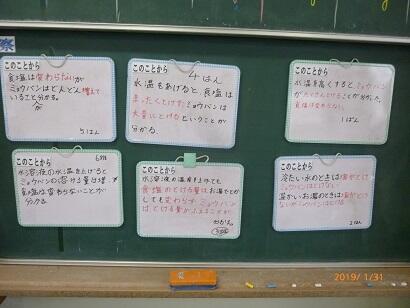 このことから
食塩は変わらないが
ミョウバンはどんどん増えて
いること分かる。
が
5はん
このことから
4はん
水温をあげると、食塩は
まったくとけず、ミョウバンは
大量にとけるということが
分かる。
このことから
水温を高くすると、ミョウバン
がたくさんとけることが分かった。
食塩は変わらない。
1ぱん
このことから
水溶液の水温を上げると
ミョウバンの溶ける量は増え
食塩は変わらないことが
分かる
このことから
水溶液の温度を上げても
食塩のとける量は
しても変わらず ミョウバン
はとける量がふえることが
分かる。
3ぱん
このことから
冷たい水のときは
ミョウバンはとけない
温かいお湯のときは
ないがミョウバンはとける
2はん
2019/ 1/31